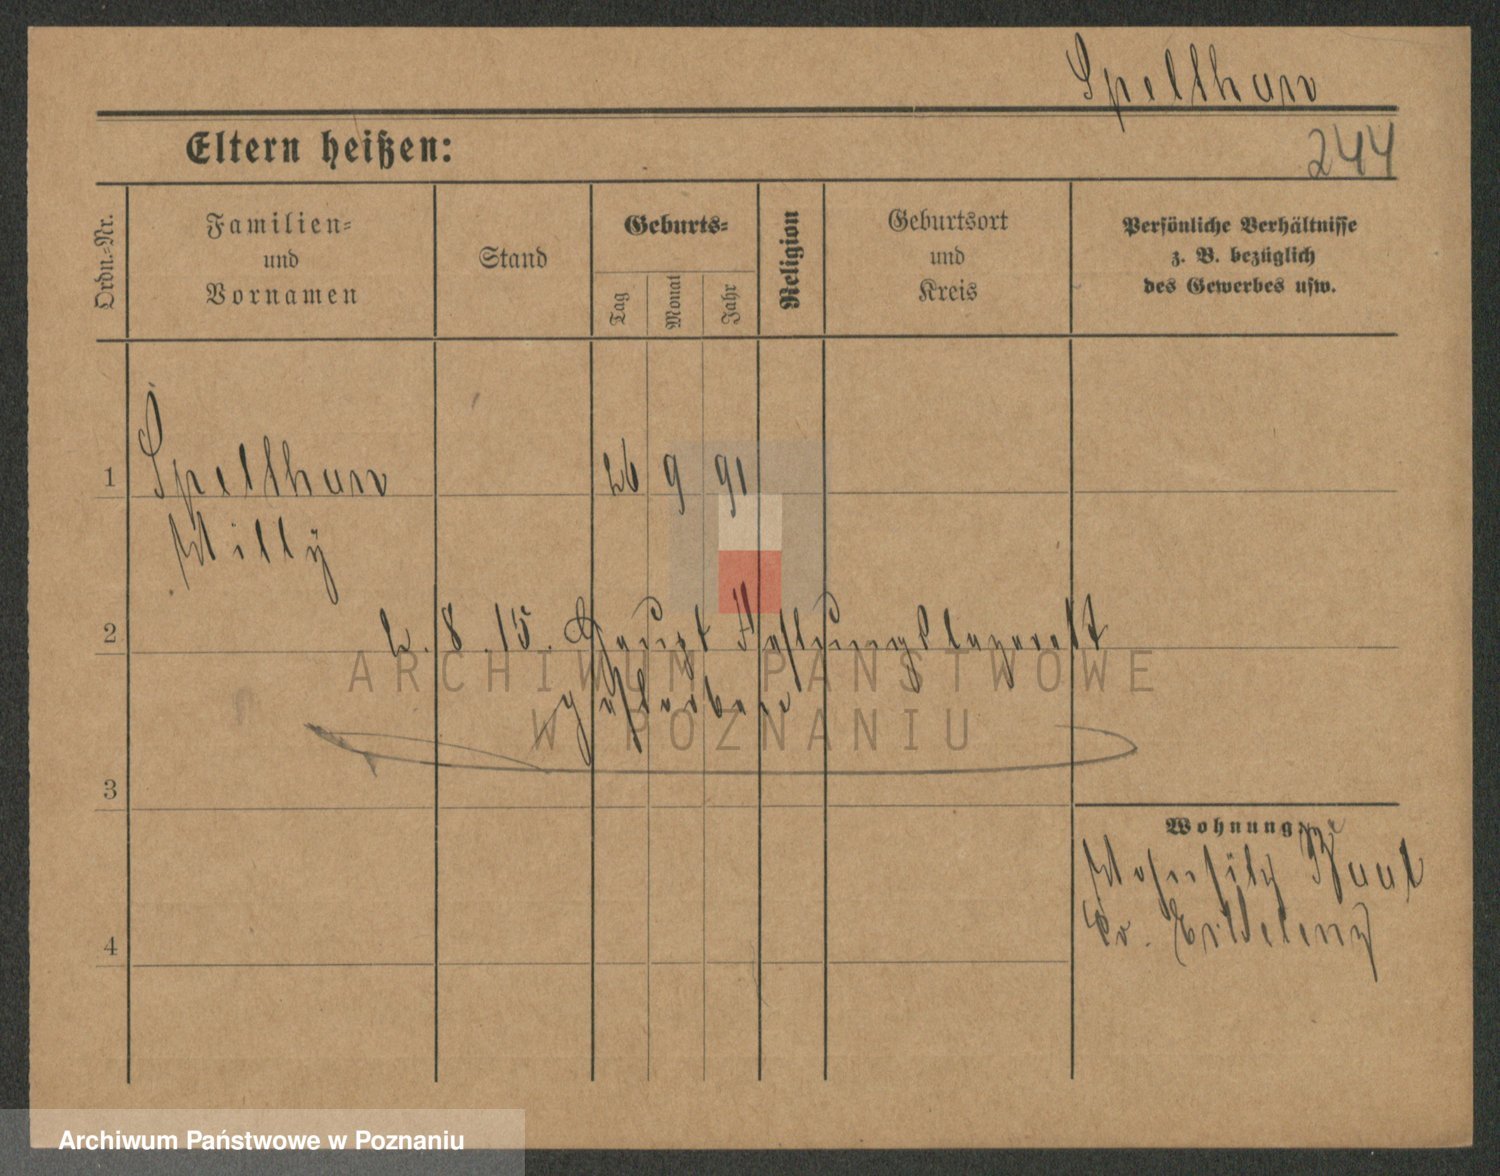 Spelthun
Eltern heißen:
244
Ordn.-Nr.
Familien-
und
Vornamen
Stand
Geburts-
Tag
Monat
Jahr
Religion
Geburtsort
und
Kreis
Persönliche Verhältnisse
z. B. bezüglich
des Gewerbes usw.
1
Spelthun
26 9 91
Willy
2
2. 8. 15. Haupt Festungslazarett
gestorben
ARCHIWUM PAŃSTWOWE
W POZNANIU
3
Wohnung:
Wohnsitz
Kr. Erkelenz
4
Archiwum Państwowe w Poznaniu